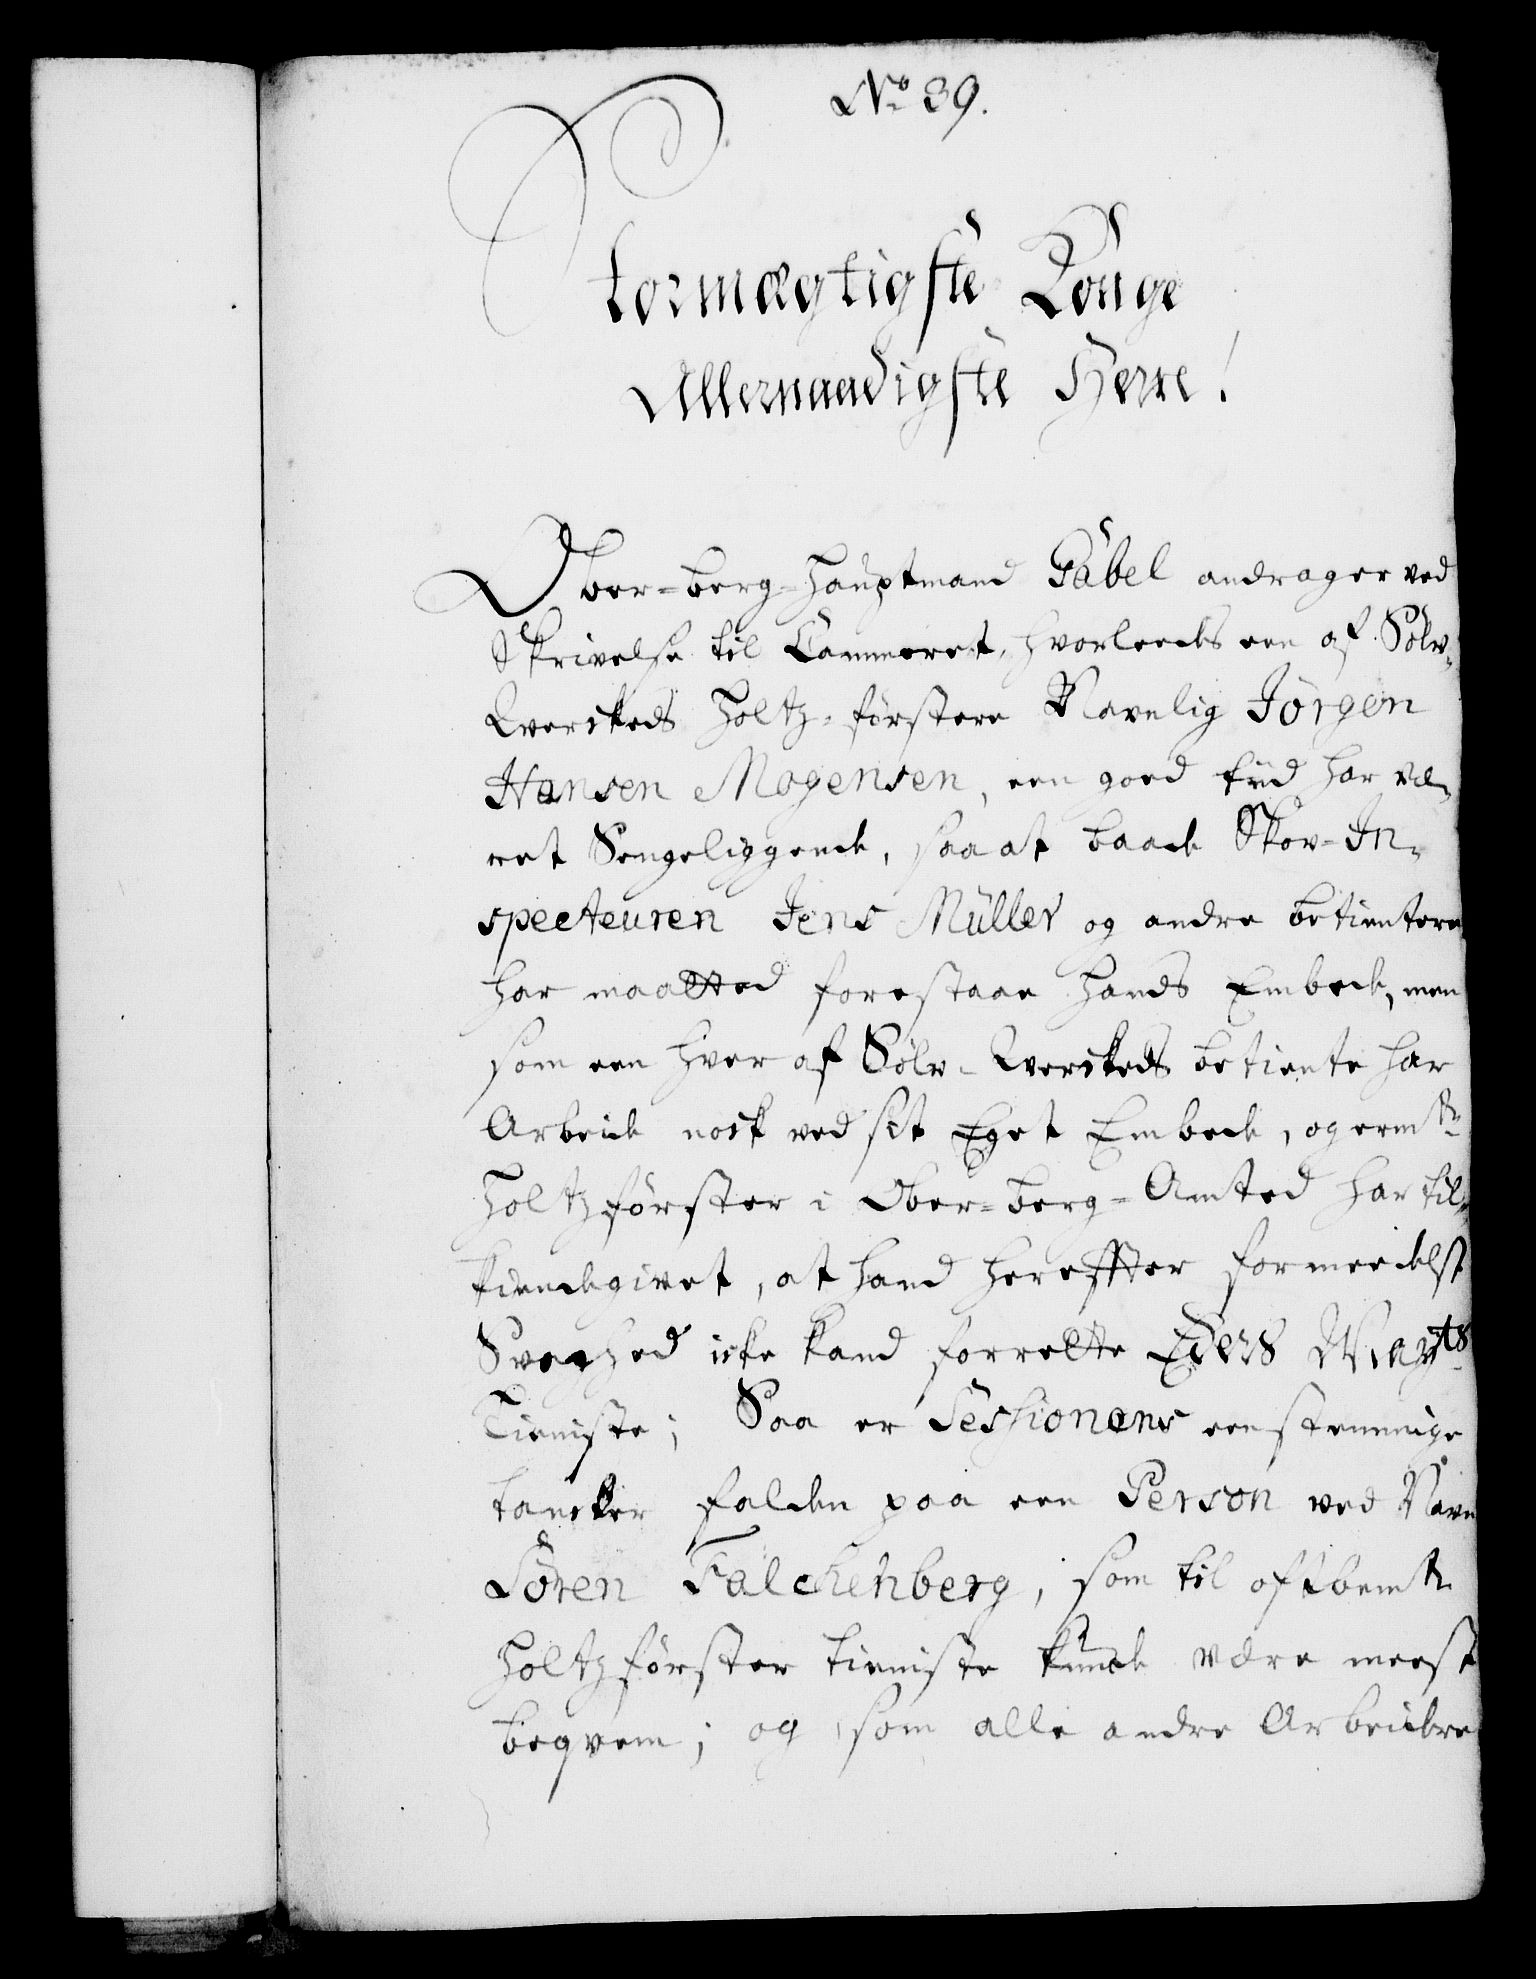 No 39.
Stormægtigste Konge
Allernaadigste Herre!
Ober-berg-Hauptmand Gäbel andrager ved
Skrivelse til Cammeret, hvorleedes een af Sølv-
Wverckeds Holtz-førstere Navnlig Jörgen
Hansen Mogensen, een goed tiid har væ-
ret Sengeliggende, saa at baade Skov-In-
specteuren Jens Müller og andre betientere
har maatted forestaae hands Embede, men
som een hver af Sølv-Wverckeds betiente har
Arbeide nock ved sit Eget Embede, og ermte
Holtzførster i Ober-berg-Amted har til-
kiendegivet, at hand hereffter formeedelst
Svaghed icke kand forrette Eders Mayts
Tieniste; Saa er Sessionens eenstemmige
tancker falden paa een Person ved Navn
Sören Falckenberg, som til oftbemte
Holtzførster tieniste kunde være meest
beqvem; og som alle andre Arbeidere